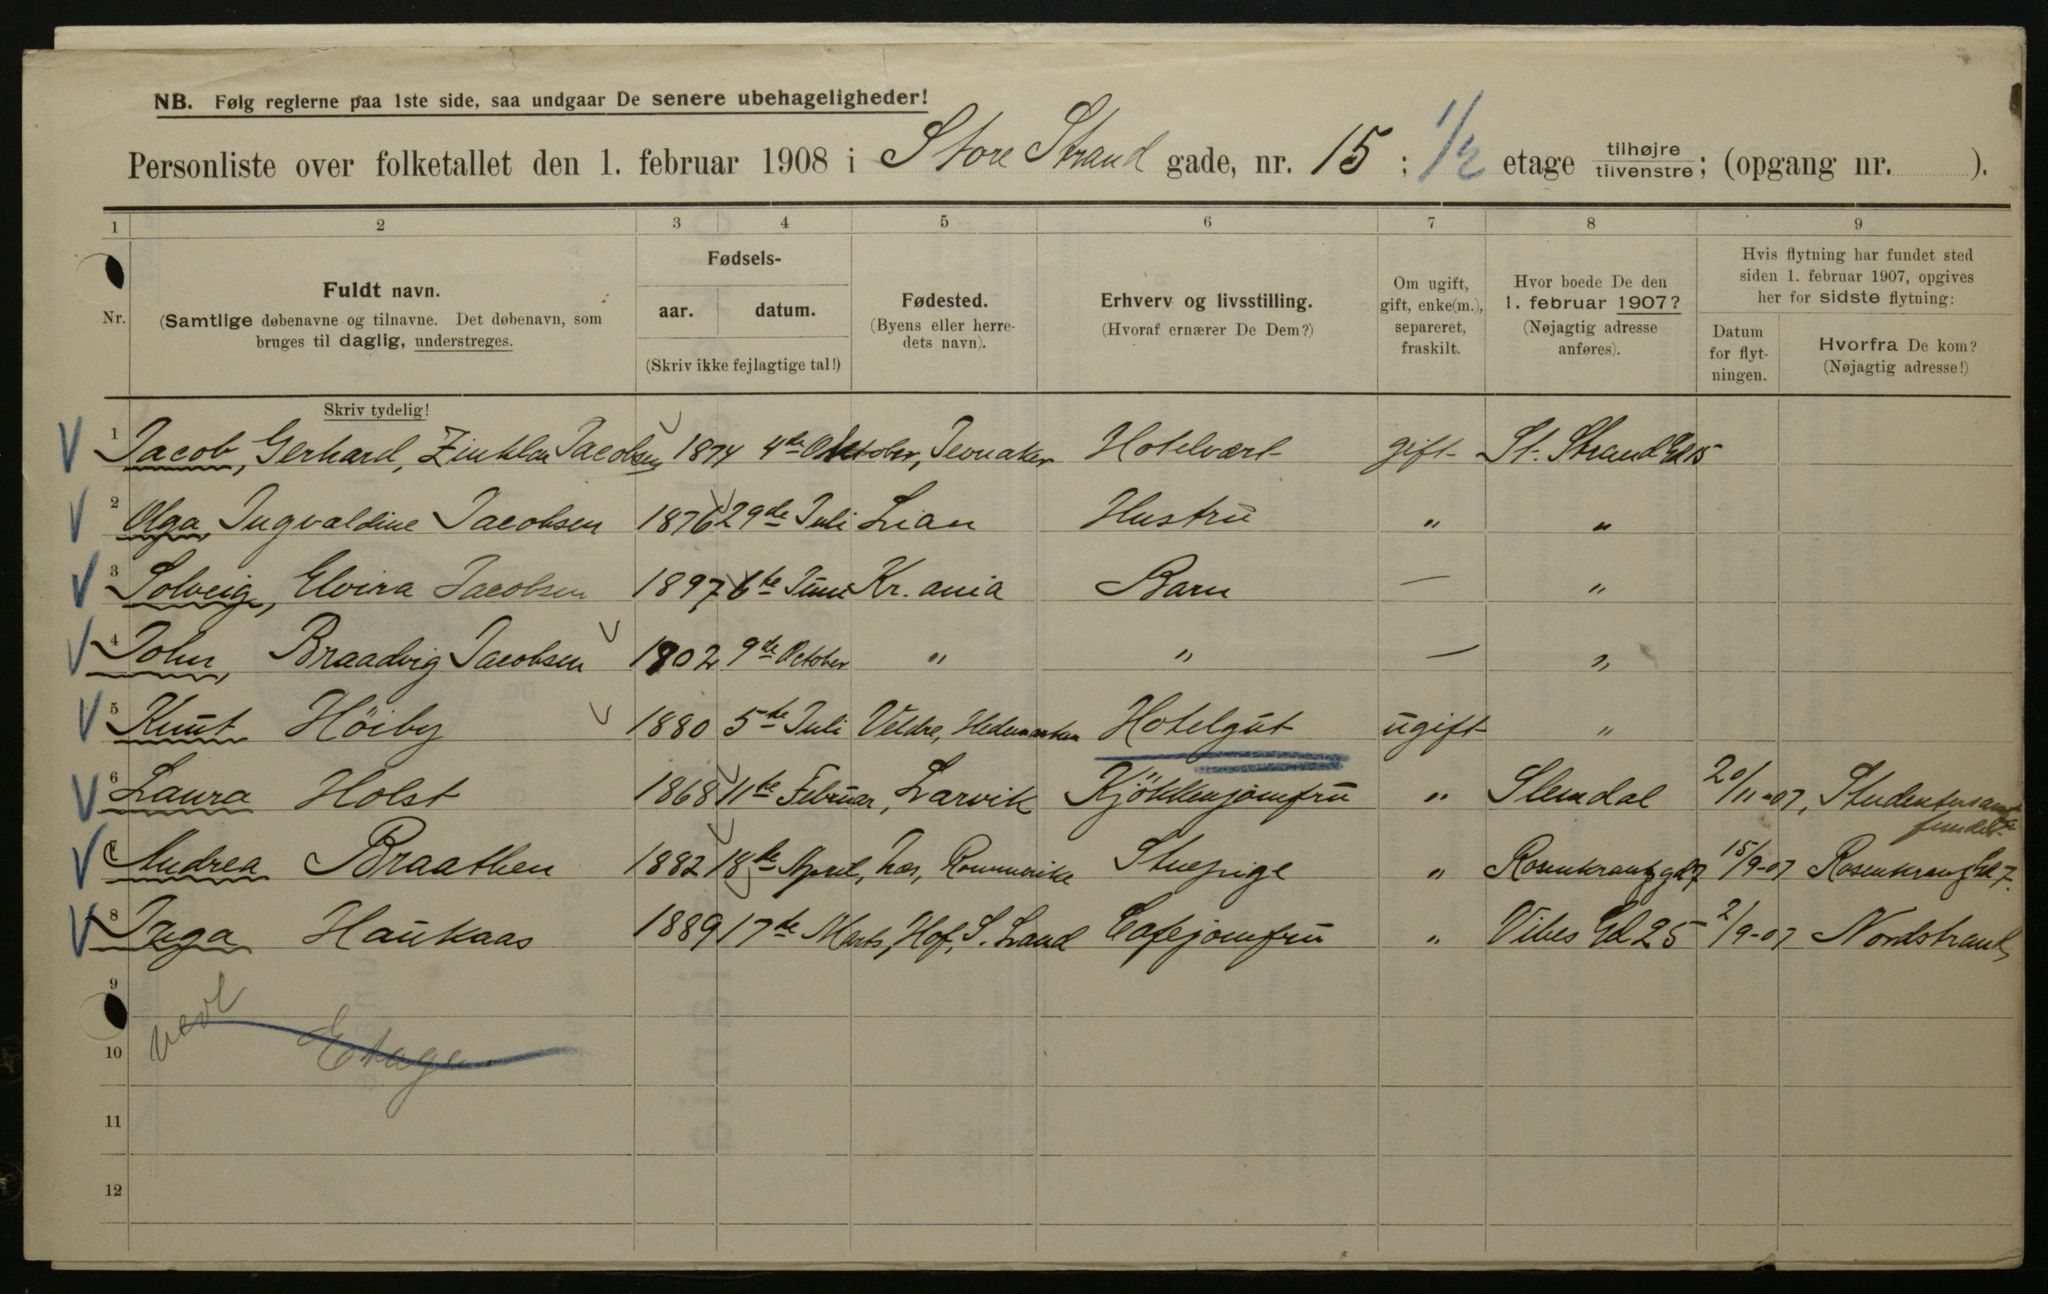 NB. Følg reglerne paa 1ste side, saa undgaar De senere ubehageligheder!
Personliste over folketallet den 1. februar 1908 i Store Strand gade, nr. 15 ; 1/2 etage tilhøjre/tilvenstre; (opgang nr. ).
1 2 3 4 5 6 7 8 9
Nr. Fuldt navn. (Samtlige døbenavne og tilnavne. Det døbenavn, som bruges til daglig, understreges. Fødsels- aar. datum. (Skriv ikke fejlagtige tal!) Fødested. (Byens eller herredets navn). Erhverv og livsstilling. (Hvoraf ernærer De Dem?) Om ugift, gift, enke(m.), separeret, fraskilt. Hvor boede De den 1. februar 1907? (Nøjagtig adresse anføres). Hvis flytning har fundet sted siden 1. februar 1907, opgives her for sidste flytning: Datum for flytningen. Hvorfra De kom? (Nøjagtig adresse!)
Skriv tydelig!
1 Jacob, Gerhard, Zinklar Jacobsen 1874 4de October, Jevnaker Hotelvært gift St. Strand Gd 15
2 Olga, Ingvaldine Jacobsen 1876 29de Juli Lian Hustru " "
3 Solveig, Elvira Jacobsen 1897 6te Juni Kr. ania Barn — "
4 John, Braadvig Jacobsen 1902 9de October " " — "
5 Knut Höiby 1880 5te Juli Veldre, Hedemarken Hotelgut ugift "
6 Laura Holst 1868 11te Februar, Larvik Kjökkenjomfru " Slemdal 20/11-07, Studentersamfundet
7 Andrea Braathen 1882 18de April, Næs, Rommerike Stuepige " Rosenkrantz gd 7 15/9-07 Rosenkranz Gd 7.
8 Inga Haukaas 1889 17de Marts, Hof, S. Land Cafejomfru " Vibes Gd 25 2/9-07 Nordstrand
9
10 Etage
11
12